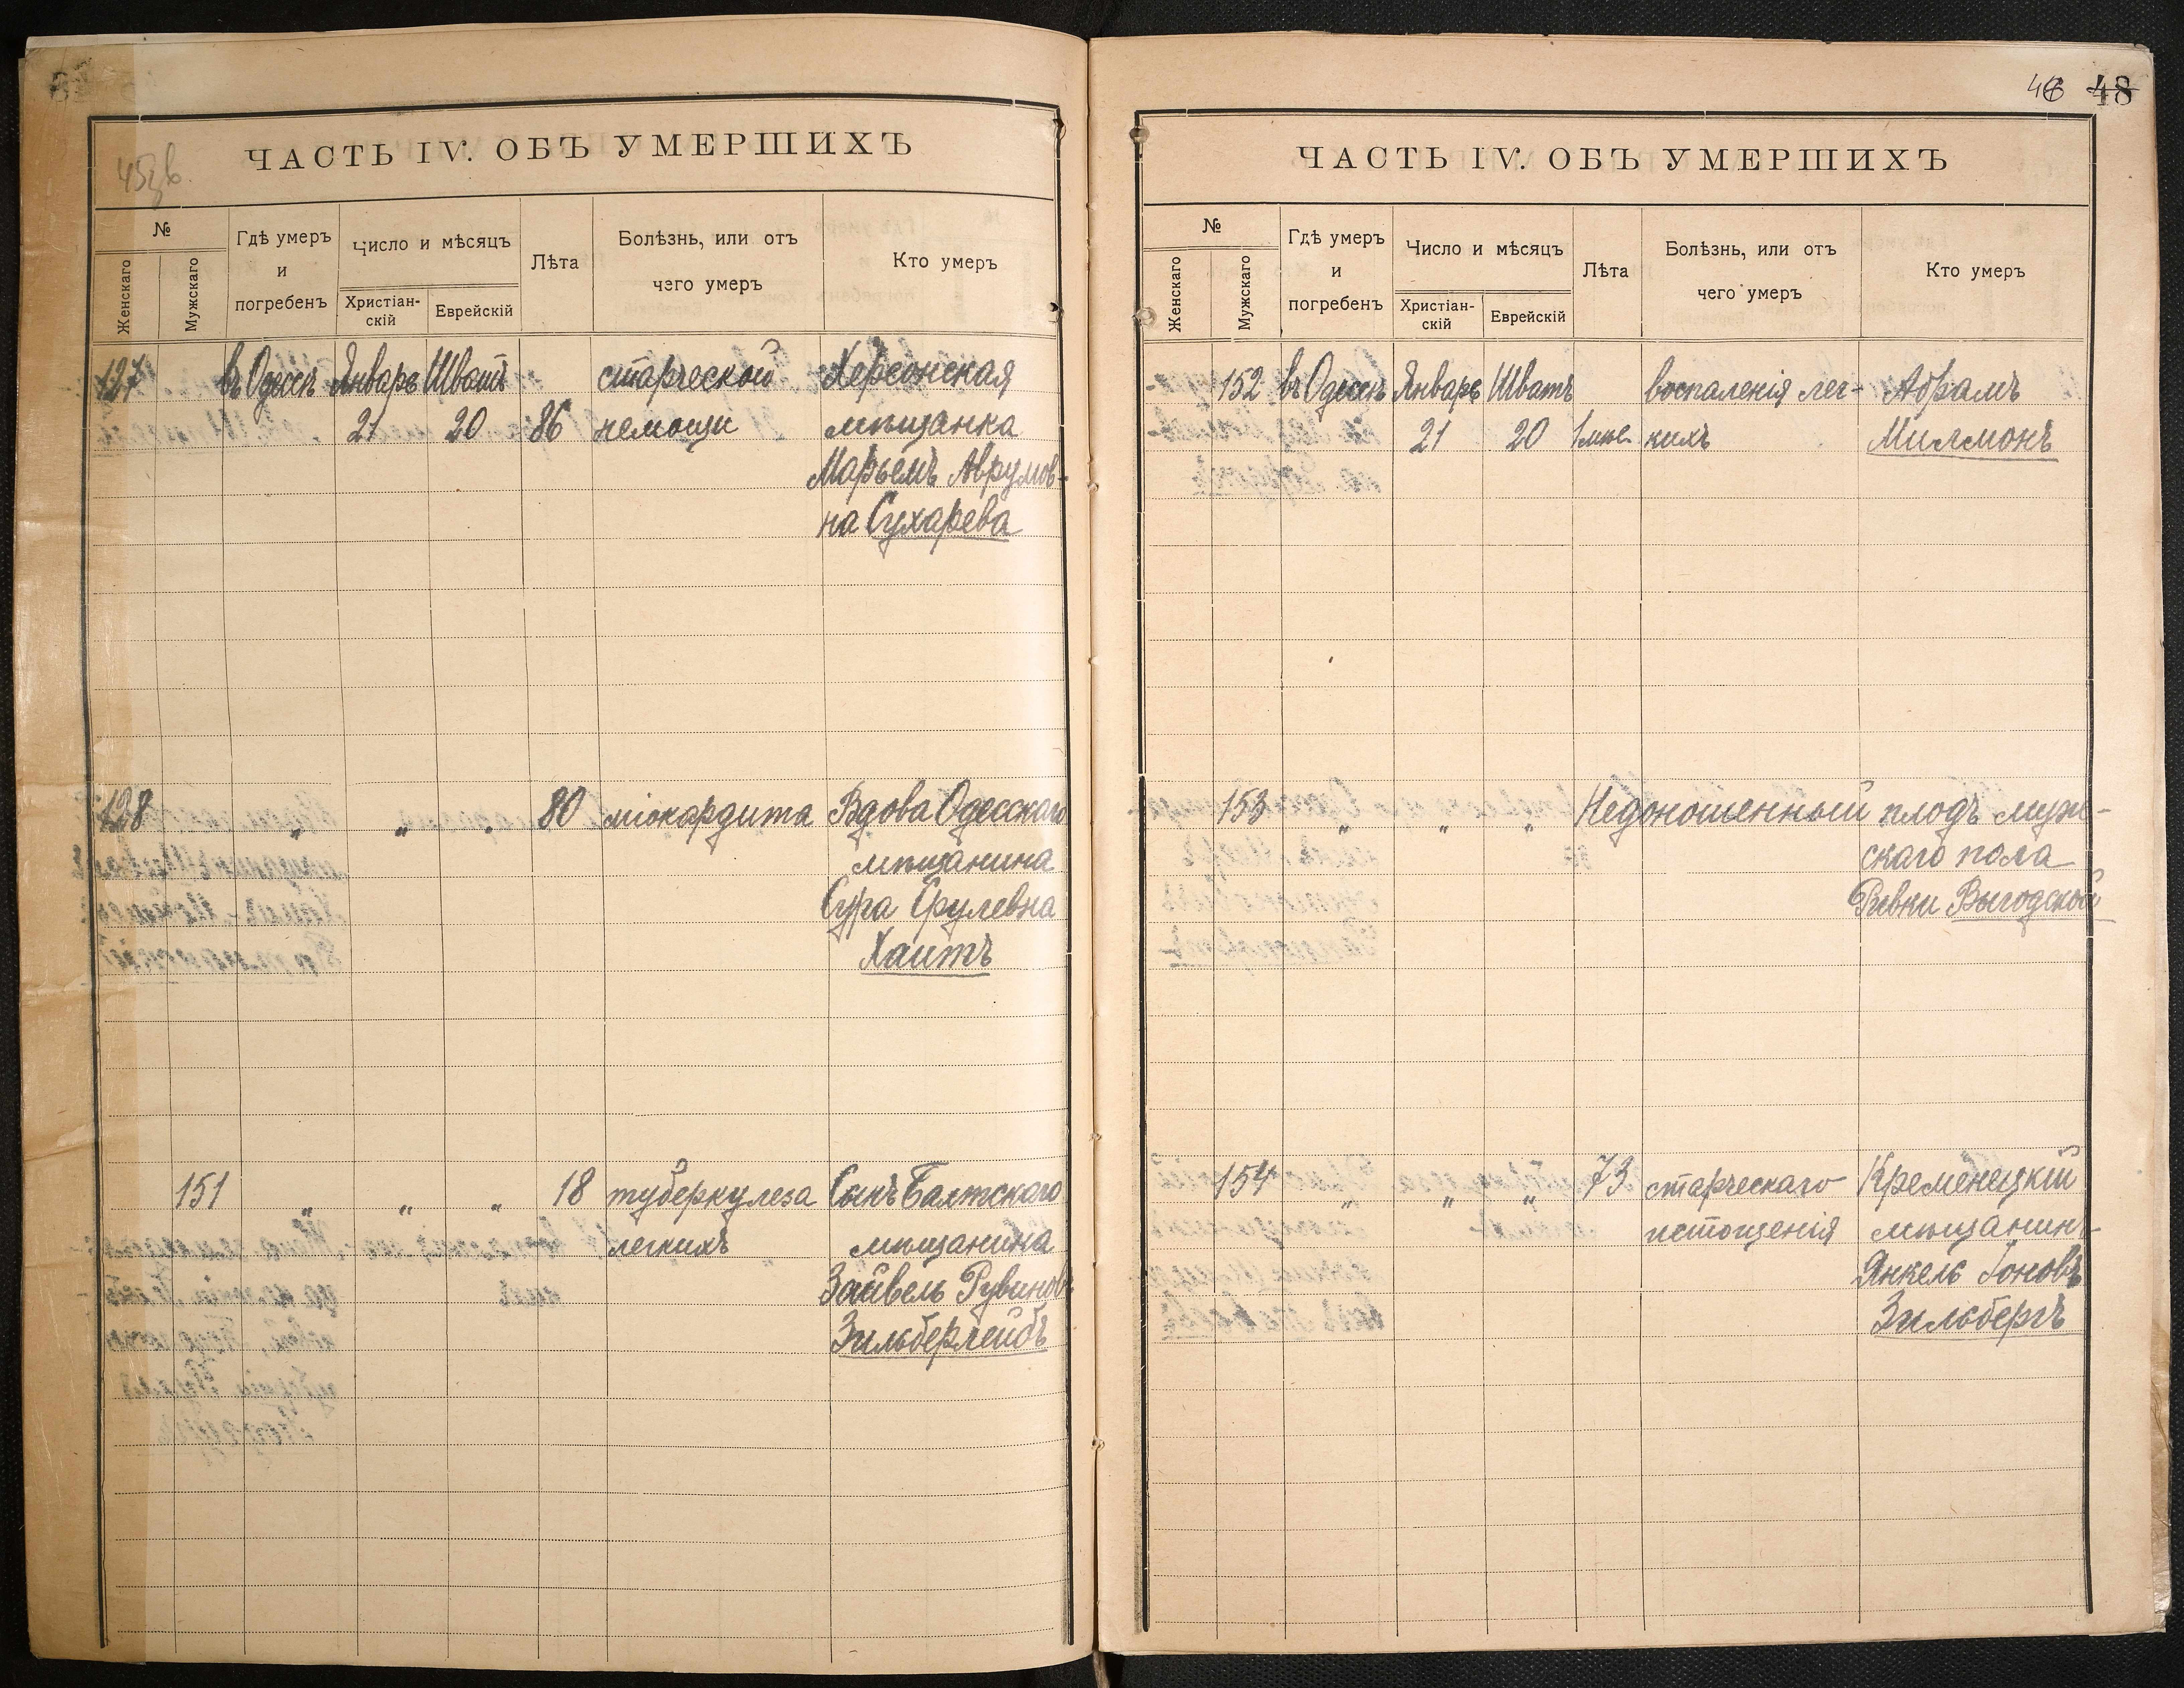 45зв.
ЧАСТЬ IV. ОБЪ УМЕРШИХЪ
№
Женскаго
Мужскаго
Гдѣ умеръ
и
погребенъ
Число и мѣсяцъ
Христіан-
скій
Еврейскій
Лѣта
Болѣзнь, или отъ
чего умеръ
Кто умеръ
127 въ Одессѣ Январь Шватъ старческой Херсонская
21 20 86 немощи мѣщанка
Марьемъ Аврумов-
на Сухарева
128 „ „ „ 80 міокардита Вдова Одесскаго
мѣщанина
Сура Срулевна
Хаитъ
151 „ „ „ 18 туберкулеза Сынъ Балтскаго
легкихъ мѣщанина
Зайвель Рувиновъ
Зильберлейбъ
46 48
ЧАСТЬ IV. ОБЪ УМЕРШИХЪ
№
Женскаго
Мужскаго
Гдѣ умеръ
и
погребенъ
Число и мѣсяцъ
Христіан-
скій
Еврейскій
Лѣта
Болѣзнь, или отъ
чего умеръ
Кто умеръ
152 въ Одессѣ Январь Шватъ воспаленія лег- Абрамъ
21 20 1 мѣс. кихъ Милмонъ
153 „ „ „ Недоношенный плодъ муж-
скаго пола
Ривки Выгодской
154 „ „ „ 73 старческаго Кременецкій
истощенія мѣщанинъ
Янкель Іоновъ
Зильбергъ